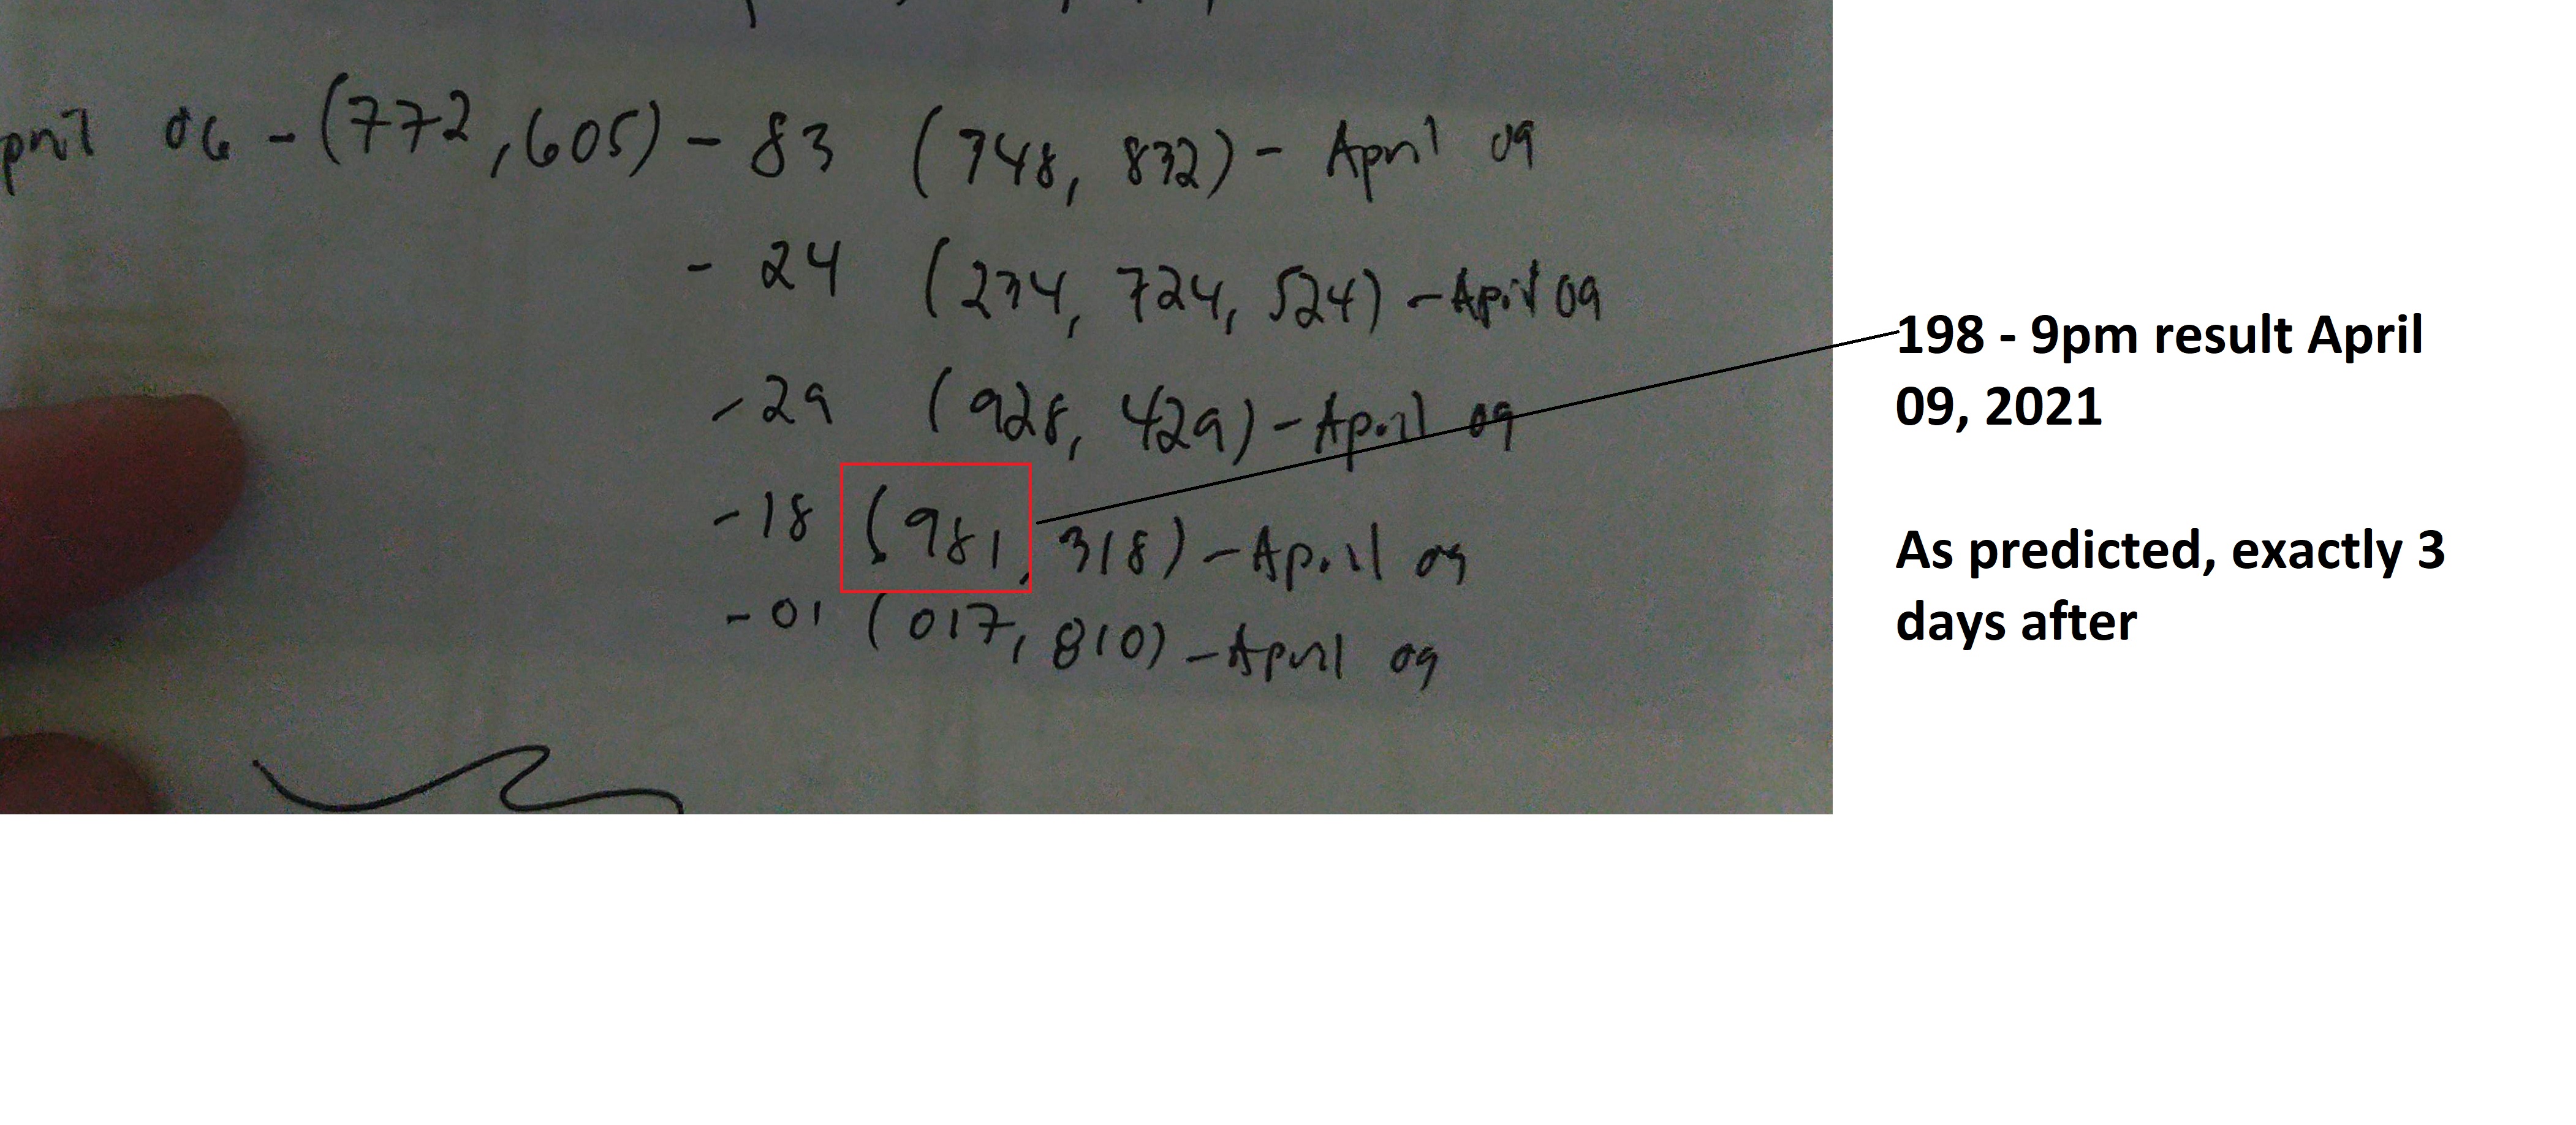 pril 06 - (772, 605) - 83 (748, 832) - April 09
- 24 (234, 724, 524) - April 09
- 29 (928, 429) - April 09
- 18 (981, 318) - April 09
- 01 (017, 810) - April 09
198 - 9pm result April
09, 2021
As predicted, exactly 3
days after